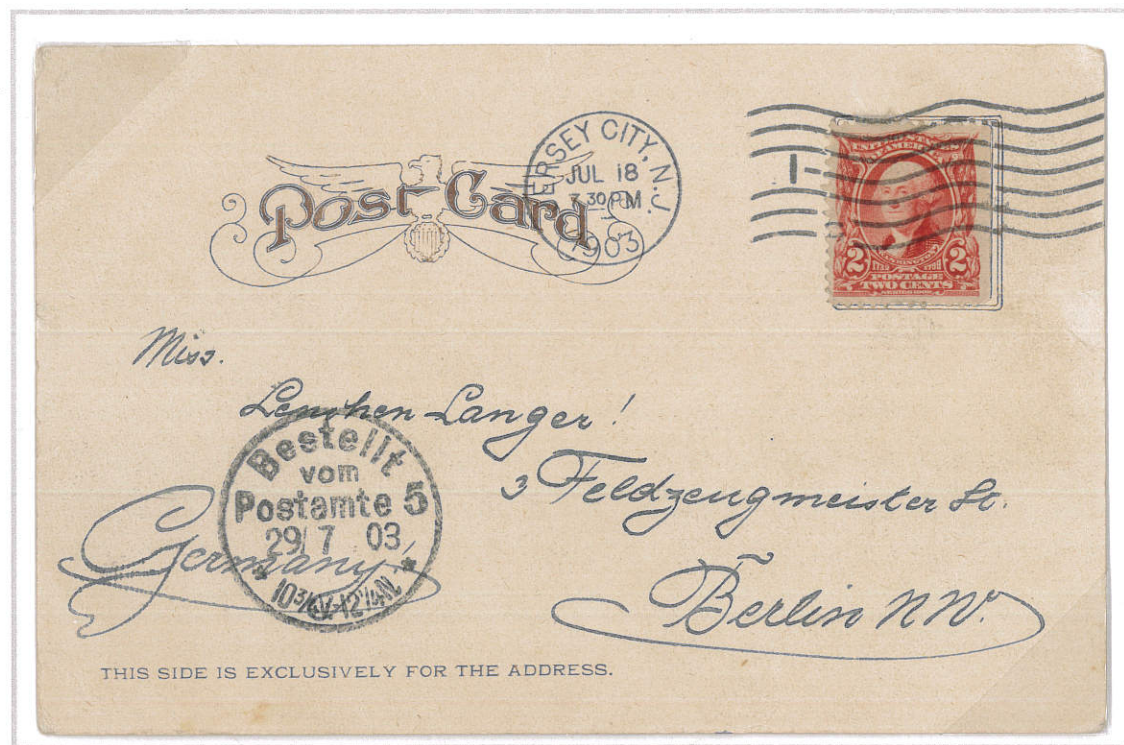 Post Card
JERSEY CITY, N.J.
JUL 18
30 PM
1903
1
UNITED STATES OF AMERICA
WASHINGTON
2 2
POSTAGE
TWO CENTS
Miss.
Lenchen Langer!
3 Feldzeugmeister St.
Berlin NW.
Germany,
Bestellt
vom
Postamte 5
29/7 03
* 10¾V-12¼N *
THIS SIDE IS EXCLUSIVELY FOR THE ADDRESS.